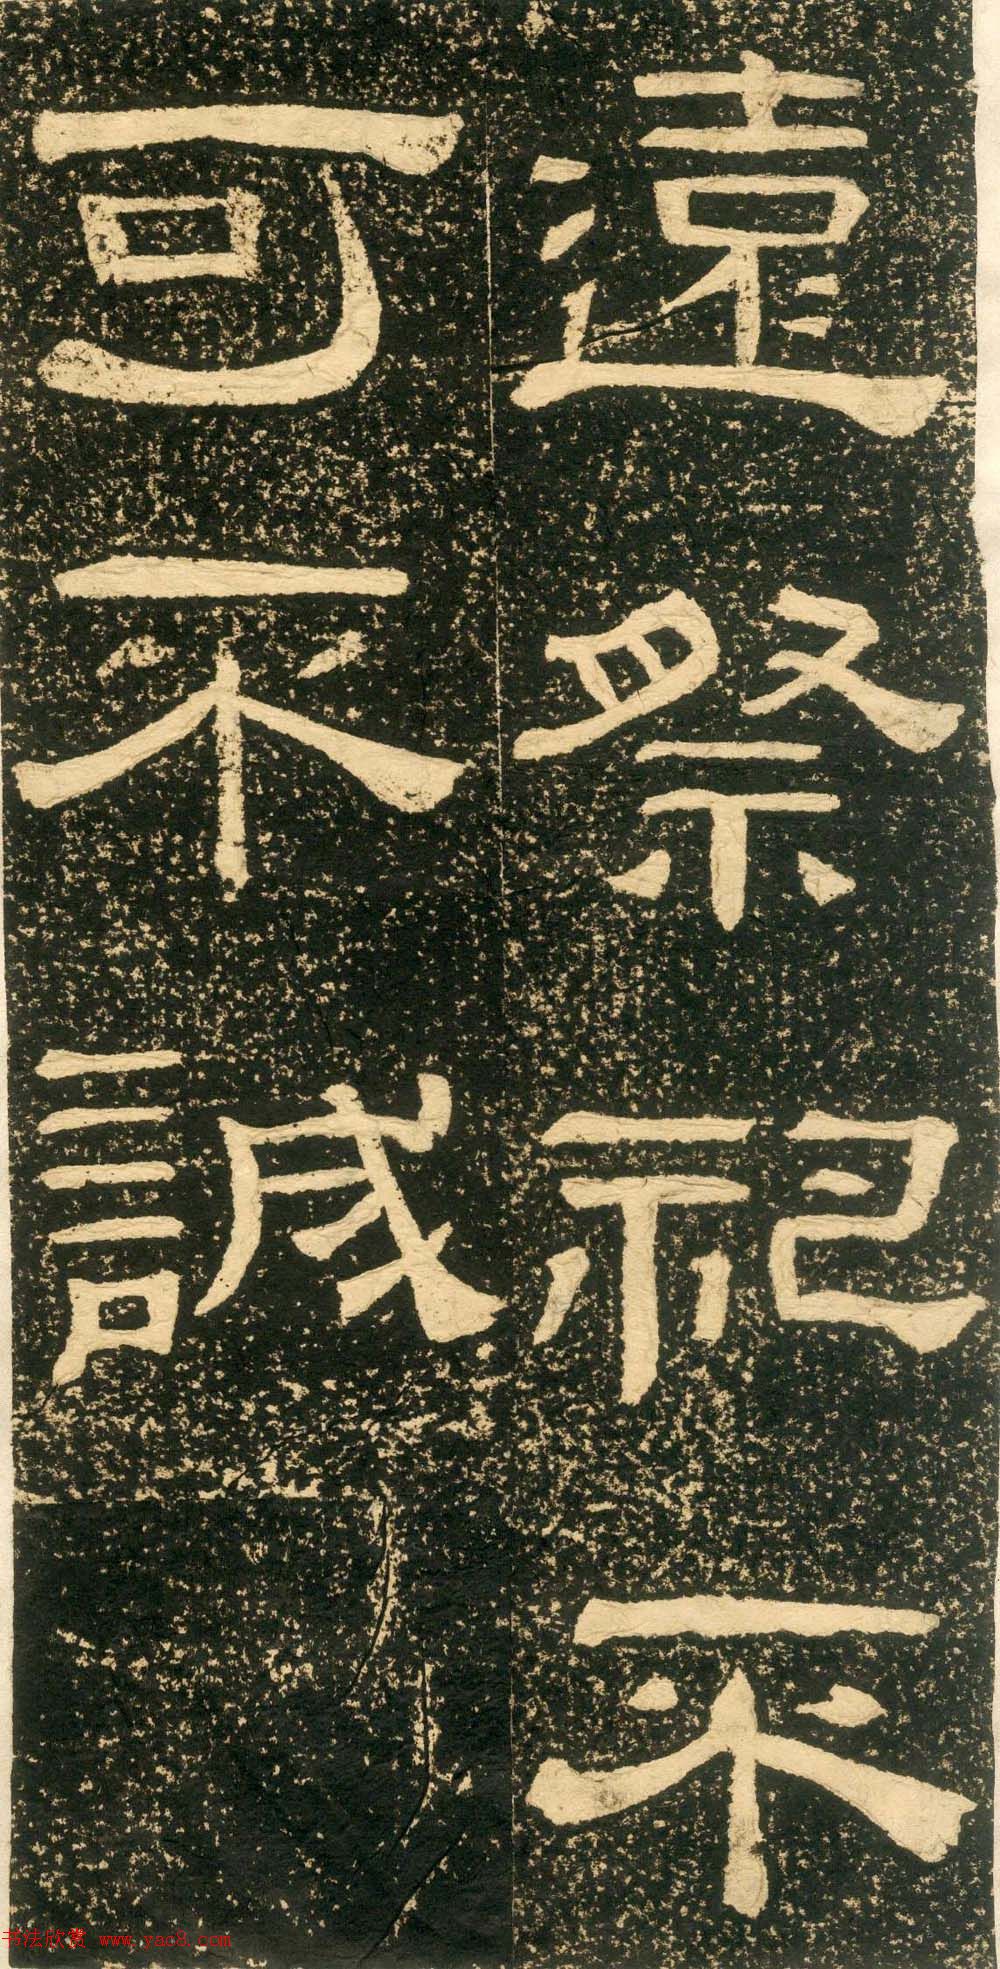 遠祭祀不
可不誠
书法欣赏 www.yac8.com